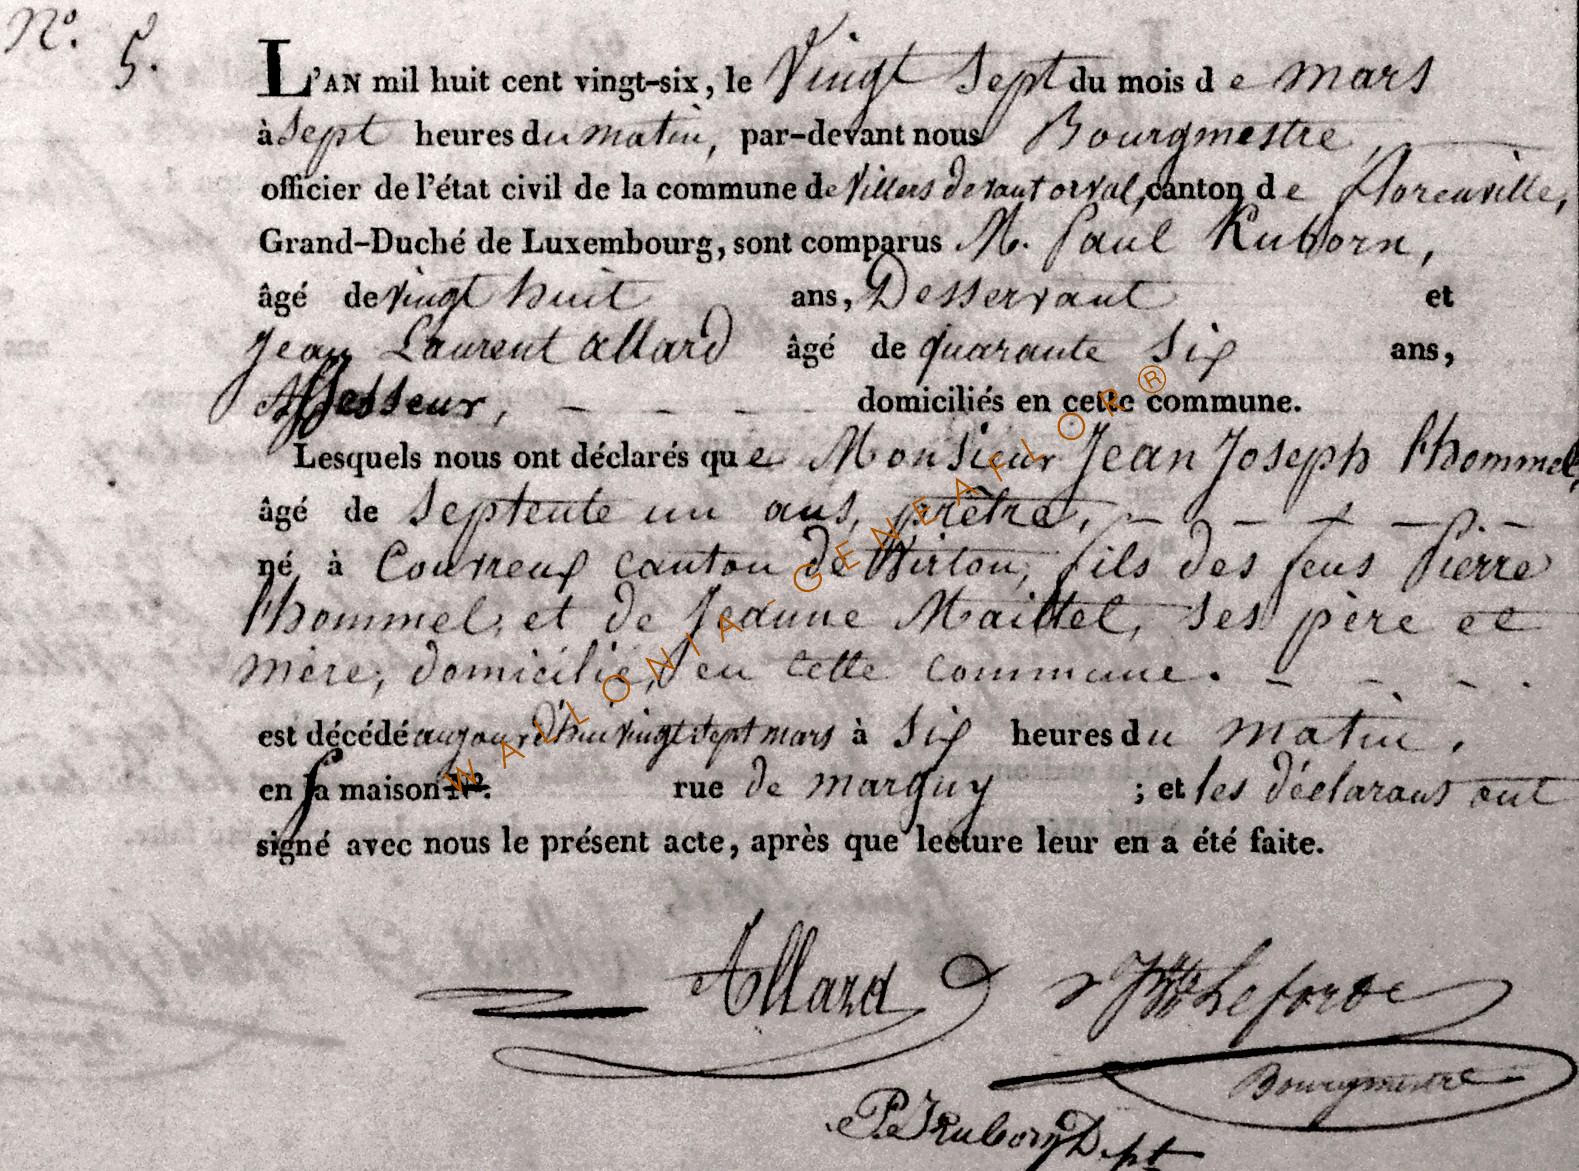 N.º 5.
L'AN mil huit cent vingt-six, le Vingt Sept du mois de mars
à Sept heures du matin, par-devant nous Bourgmestre,
officier de l'état civil de la commune de Villers devant orval, canton de florenville,
Grand-Duché de Luxembourg, sont comparus M. Paul Kuborn,
âgé de vingt huit ans, Desservant et
Jean Laurent allard âgé de quarante Six ans,
Assesseur, — — — — domiciliés en cette commune.
Lesquels nous ont déclarés que Monsieur Jean Joseph lhommel,
âgé de Septente un ans, prêtre, — — — — —
né à Couvreux canton de Virton, fils des feus Pierre
lhommel, et de Jeanne Maittel, Ses père et
mère, domicilié, en cette commune. — — — .
est décédé aujourd'hui vingt sept mars à Six heures du matin,
en sa maison N.º. rue de marguy ; et les déclarans ont
signé avec nous le présent acte, après que lecture leur en a été faite.
Allard Leforde
Bourgmestre
P. Kuborn
WALLONIA - GENEAFLOR®